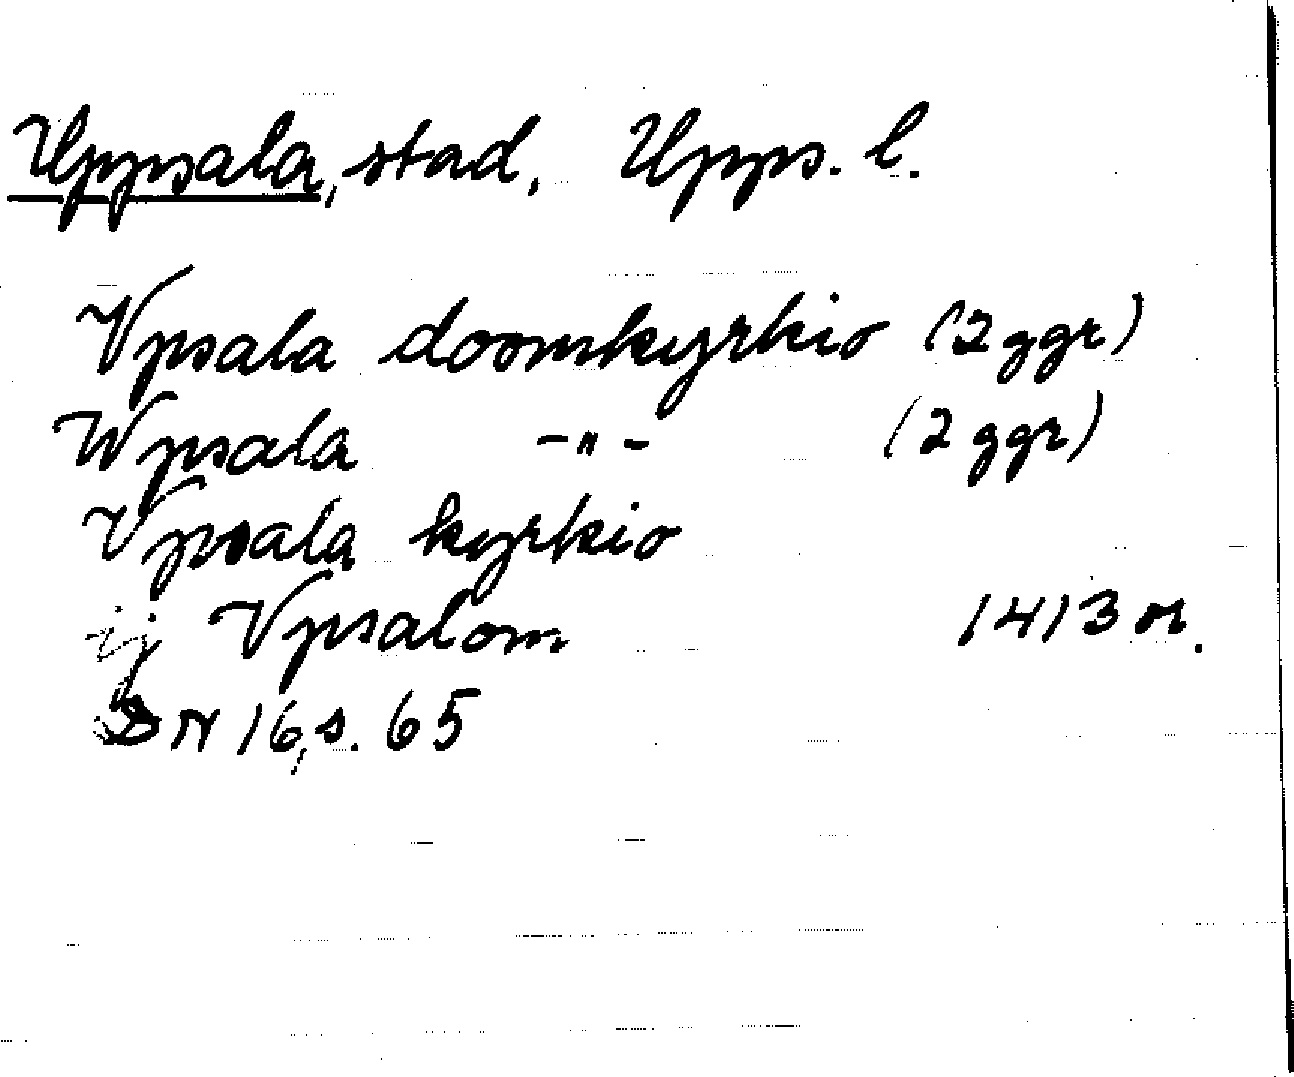 Uppsala, stad. Upps. l.
Vpsala doomkyrkio (2 ggr)
Wpsala -"- (2 ggr)
Vpsala kyrkio
ij Vpsalom 1413 or.
DN 16, s. 65